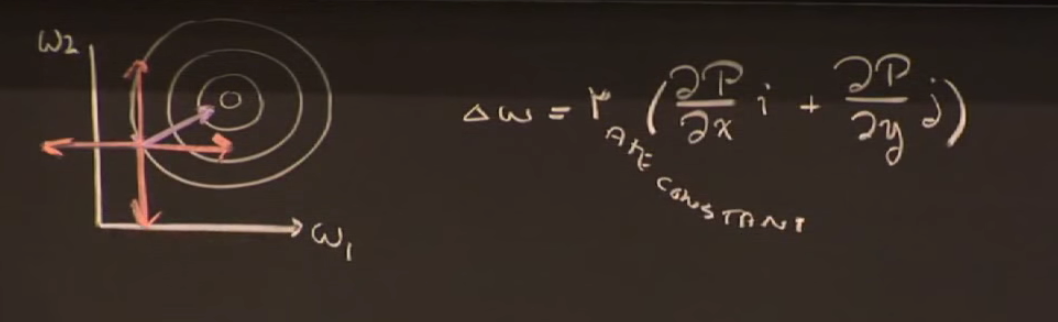 ω2
ω1
Δω = r (∂P/∂x i + ∂P/∂y j)
RATE CONSTANT